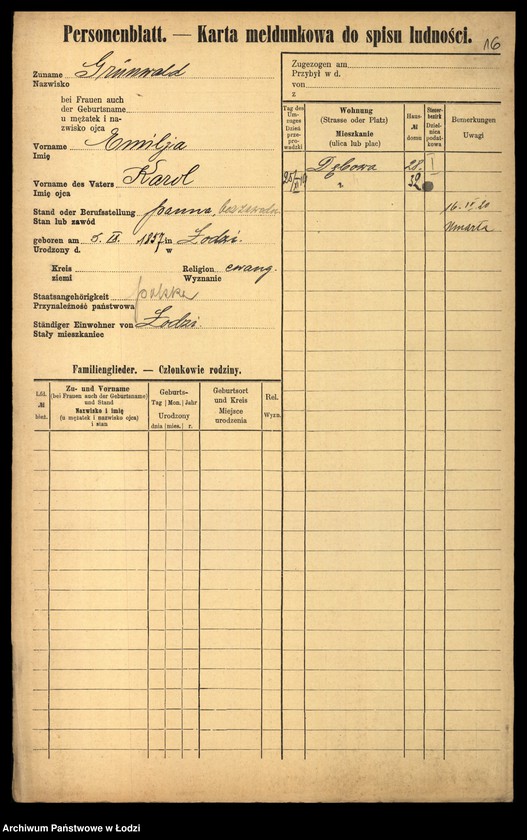 Personenblatt. — Karta meldunkowa do spisu ludności.
16
Zuname Grünwald
Nazwisko
bei Frauen auch
der Geburtsname
u mężatek i na-
zwisko ojca
Vorname Emilja
Imię
Vorname des Vaters Karol
Imię ojca
Stand oder Berufsstellung panna,
Stan lub zawód
geboren am 5. IX. 1857 in Łodzi.
Urodzony d. w
Kreis Religion ewang.
ziemi Wyznanie
Staatsangehörigkeit polska
Przynależność państwowa
Ständiger Einwohner von Łodzi.
Stały mieszkaniec
Familienglieder. — Członkowie rodziny.
Lfd. № bież.
Zu- und Vorname
(bei Frauen auch der Geburtsname)
und Stand
Nazwisko i imię
(u mężatek i nazwisko ojca)
i stan
Geburts-
Tag Mon. Jahr
Urodzony
dnia mies. r.
Geburtsort
und Kreis
Miejsce
urodzenia
Rel.
Wyzn.
Zugezogen am
Przybył w d.
von
z
Tag des
Um-
zuges
Dzień
prze-
prowa-
dzki
Wohnung
(Strasse oder Platz)
Mieszkanie
(ulica lub plac)
Haus-
№
domu
Steuer-
bezirk
Dziel-
nica
podat-
kowa
Bemerkungen
Uwagi
Dębowa 28. I
32
16. IV 20
Umarła
Archiwum Państwowe w Łodzi